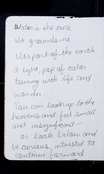 is the base
It grounds me
It's part of the earth
a light, pop of color
teeming with life and
wonder
You can look up to the
heavens and feel small
and insignificant —
or look below and
be curious, interested to
continue forward